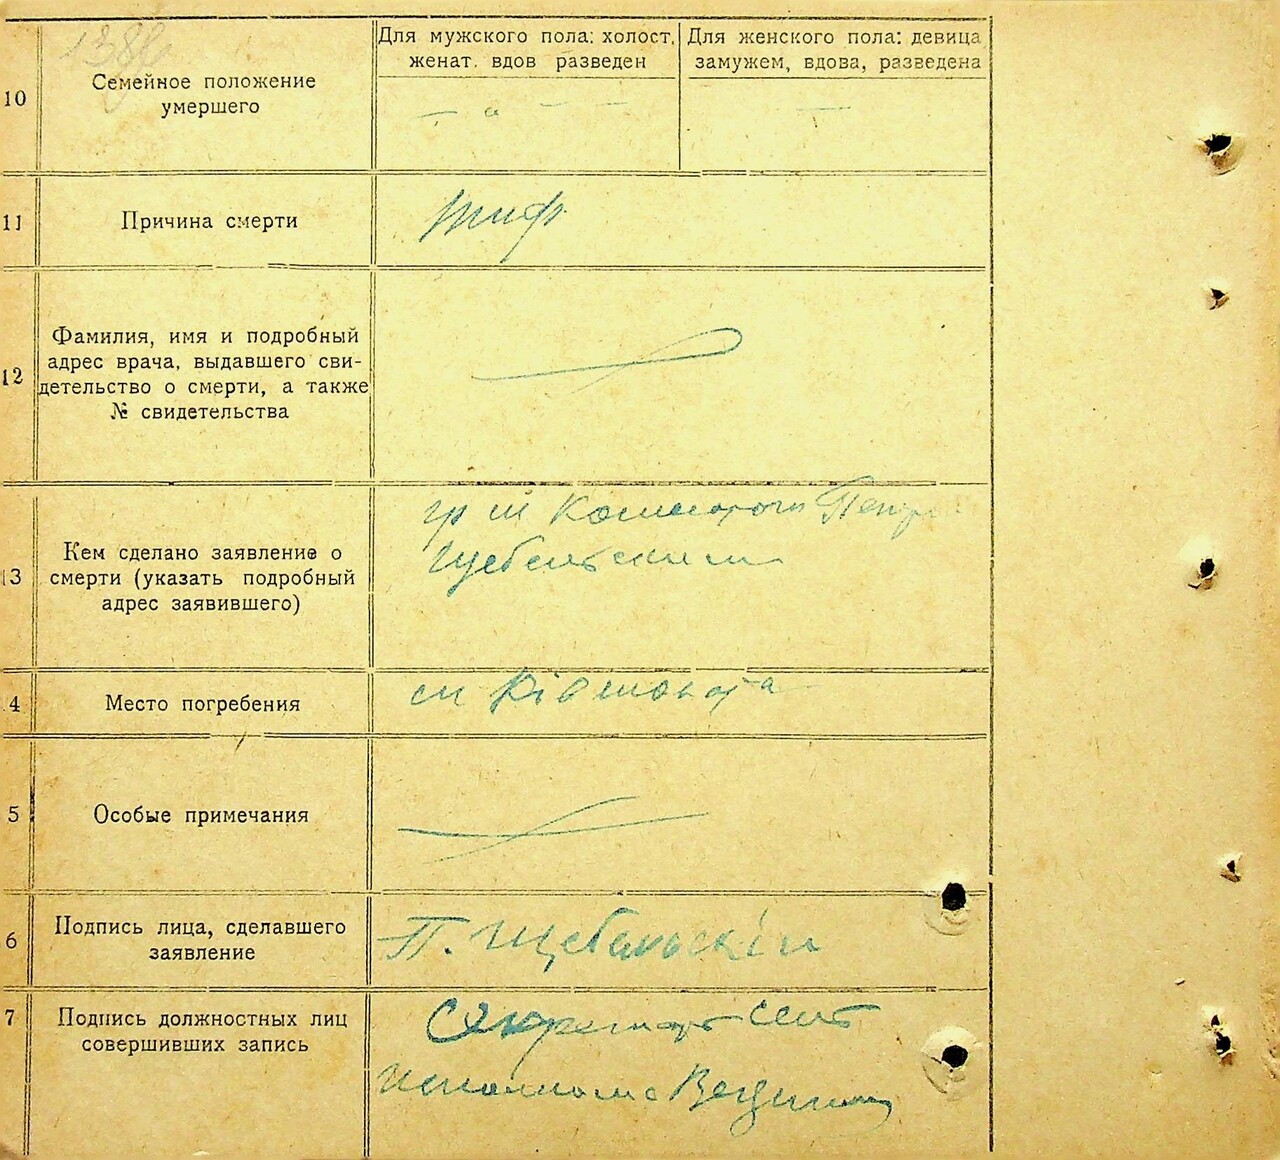 1386
10
Семейное положение
умершего
Для мужского пола: холост,
женат. вдов разведен
Для женского пола: девица
замужем, вдова, разведена
11
Причина смерти
тиф
12
Фамилия, имя и подробный
адрес врача, выдавшего сви-
детельство о смерти, а также
№ свидетельства
13
Кем сделано заявление о
смерти (указать подробный
адрес заявившего)
гр
Щебельским
4
Место погребения
5
Особые примечания
6
Подпись лица, сделавшего
заявление
П. Щебельскій
7
Подпись должностных лиц
совершивших запись
Секретарь